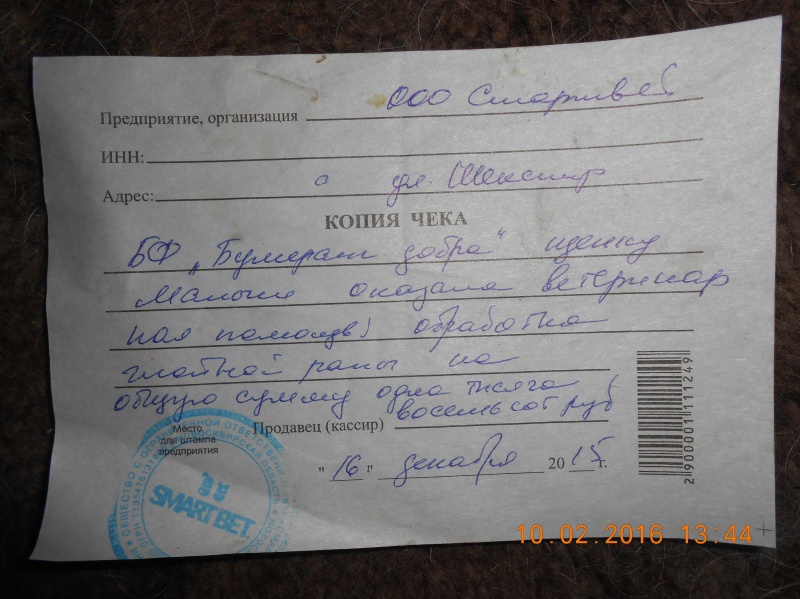 Предприятие, организация ООО Смартвет
ИНН:
Адрес: ул. Шекспир
КОПИЯ ЧЕКА
БФ „Бумеранг добра" щенку
Малыш оказана ветеринар
ная помощь! обработка
раны на
общую сумму одна тысяча
восемьсот руб
Продавец (кассир)
Место
для штампа
предприятия
"16" декабря 2015 г.
SMARTВЕТ
2 900001 111249
10.02.2016 13:44